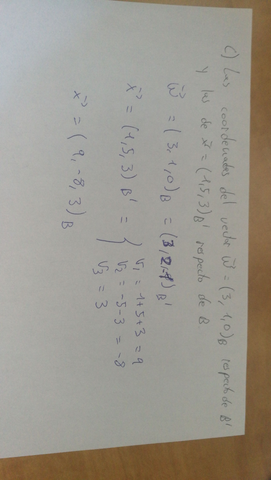 C) Las coordenadas del vector w⃗ = (3, 1, 0)B respecto de B'
y las de x⃗ = (1, 5, 3)B' respecto de B
w⃗ = (3, 1, 0)B = (3, 2, 1)B'
x⃗ = (1, 5, 3)B' = { v1 = 1+5+3 = 9
v2 = -5-3 = -8
v3 = 3
x⃗ = (9, -8, 3)B